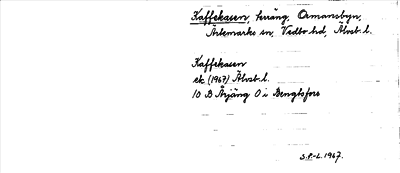 Kaffekasen, terräng, Ormansbyn,
Ärtemarks sn, Vedbo hd, Älvsb. l.
Kaffekasen
ek (1967) Älvsb. l.
10 B Årjäng O i Bengtsfors
S.P.-L. 1967.